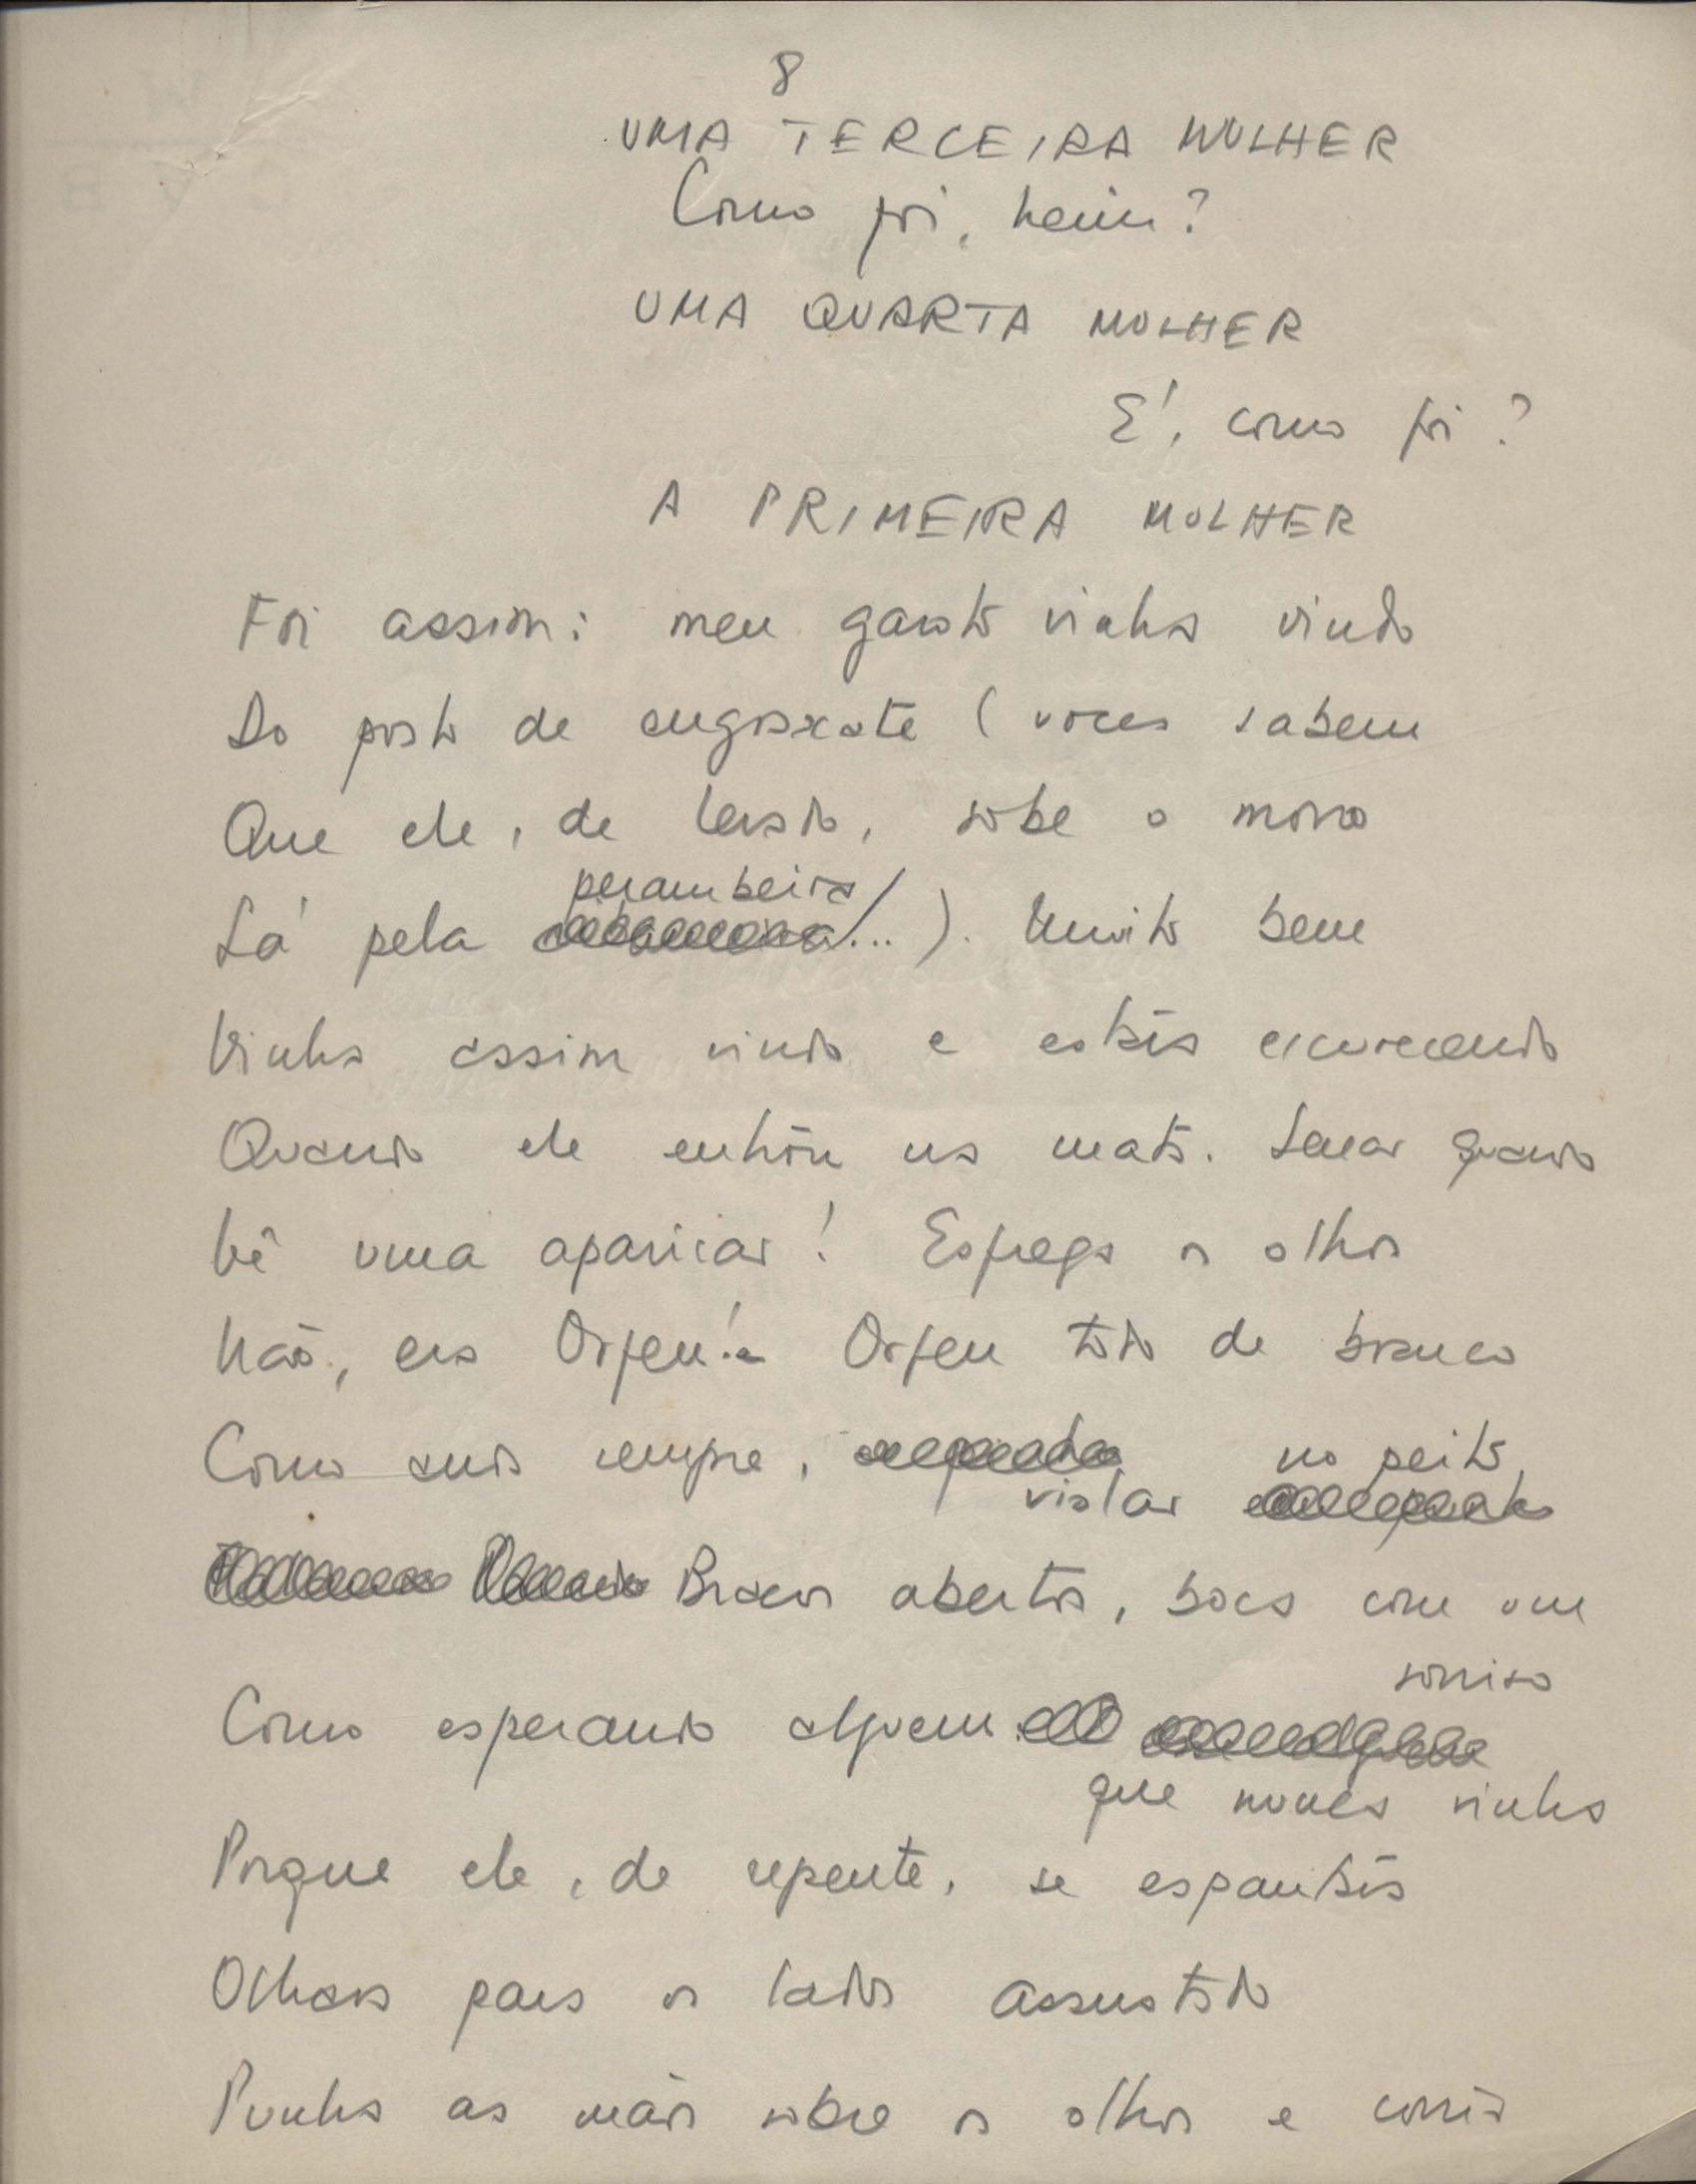 8
UMA TERCEIRA MULHER
Como foi, heim?
UMA QUARTA MULHER
E', como foi?
A PRIMEIRA MULHER
Foi assim: meu garoto vinha vindo
Do posto de engraxate (voces sabem
Que ele, de tarde, sobe o morro
Lá pela perambeira...). Muito bem
Vinha assim vindo e estava escurecendo
Quando ele entrou no mato. Senão quando
Vê uma aparicão! Esfrega os olhos
Não, era Orfeu! Orfeu todo de branco
Como anda sempre, violão no peito,
Braços abertos, boca com um sorriso
Como esperando alguem que nunca vinha
Porque ele, de repente, se espantava
Olhava para os lados assustado
Punha as mãos sobre os olhos e corria